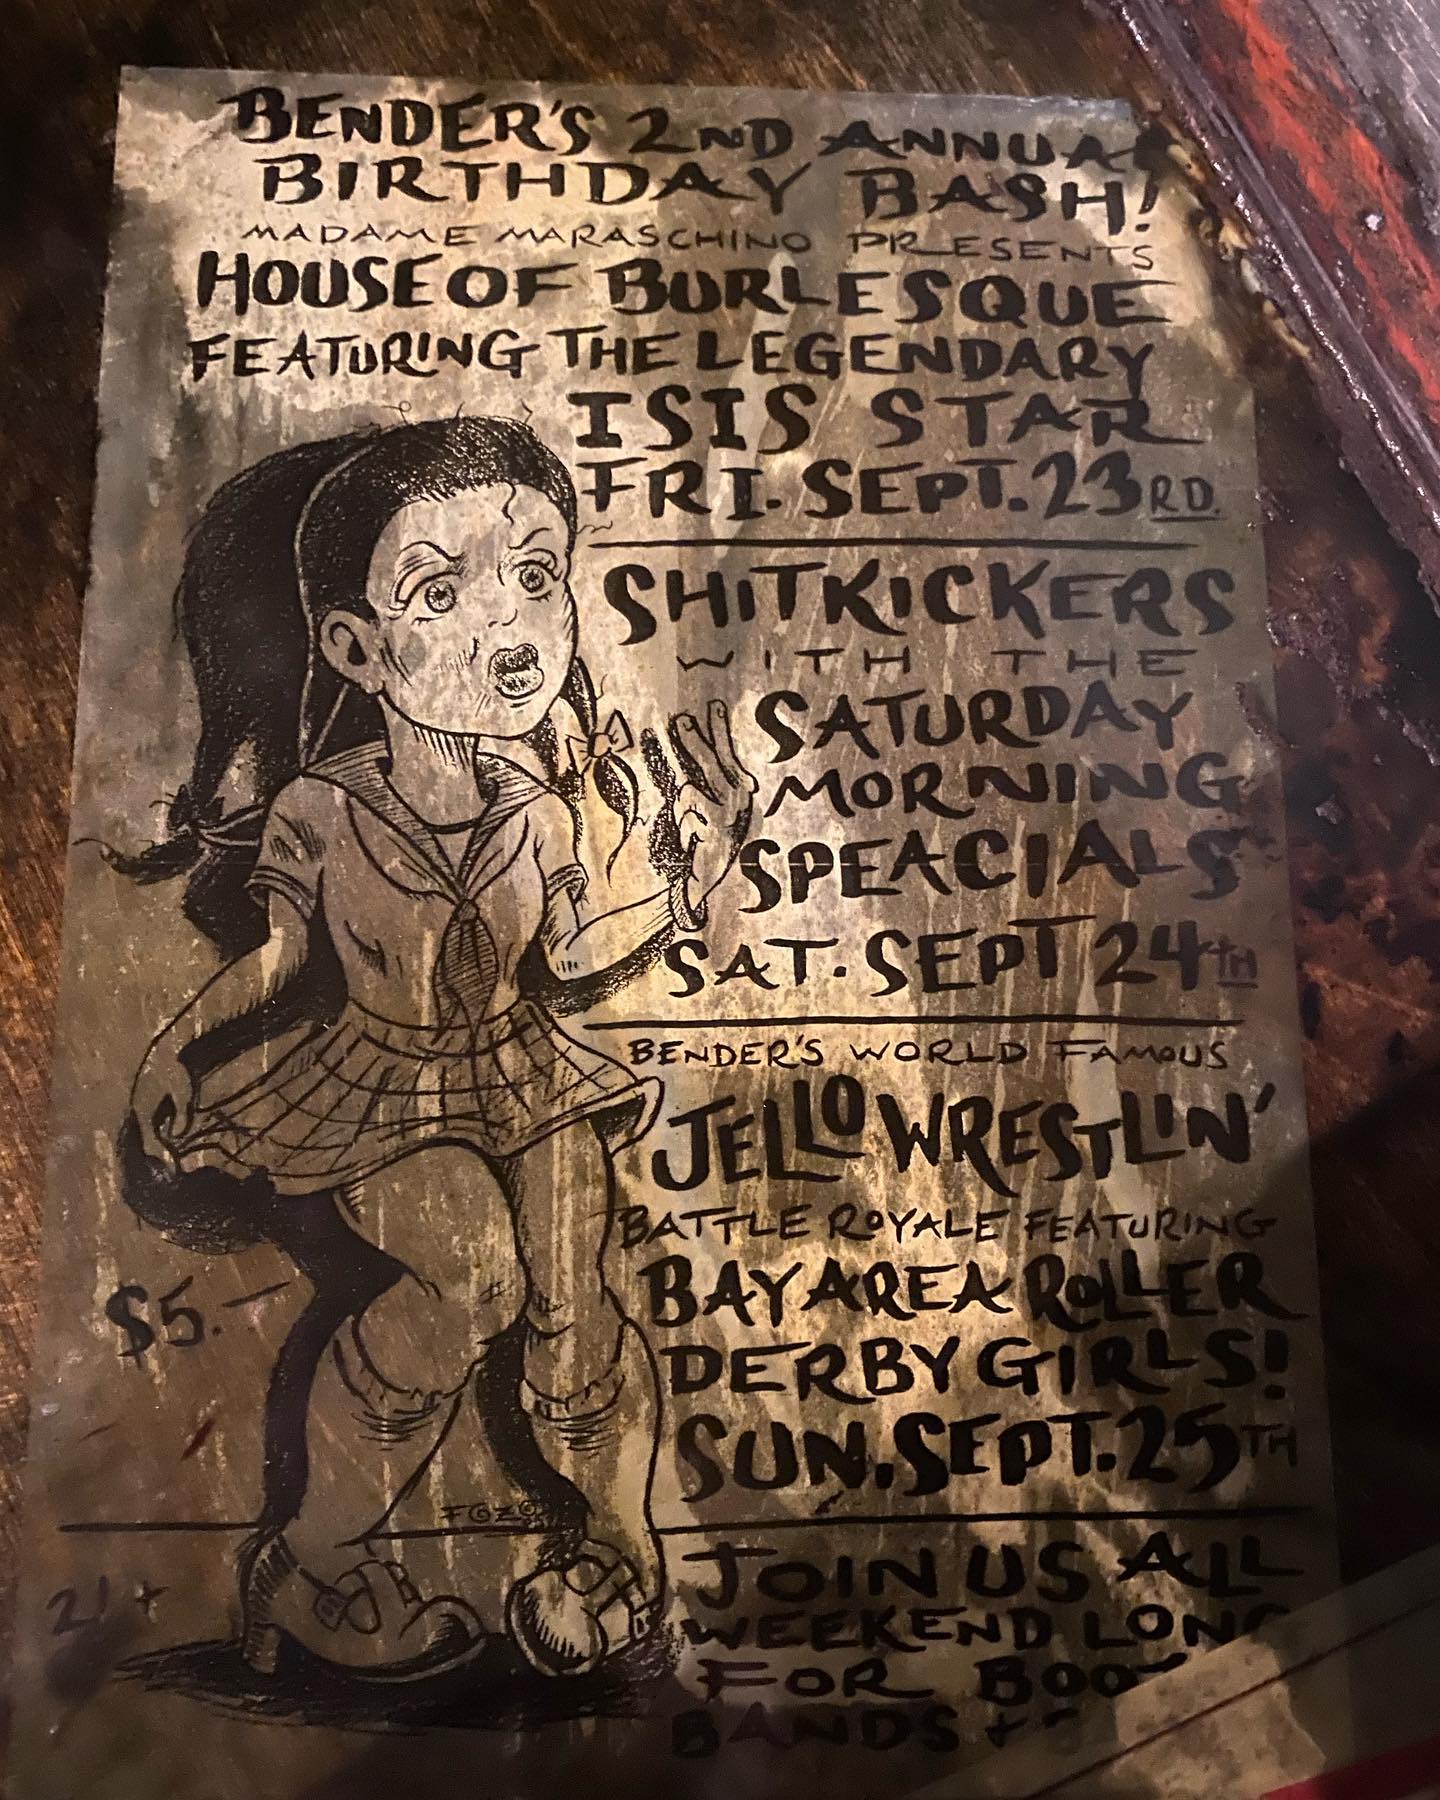 BENDER'S 2ND ANNUAL
BIRTHDAY BASH!
MADAME MARASCHINO PRESENTS
HOUSE OF BURLESQUE
FEATURING THE LEGENDARY
ISIS STAR
FRI. SEPT. 23RD.
SHITKICKERS
WITH THE
SATURDAY
MORNING
SPEACIALS
SAT. SEPT 24TH
BENDER'S WORLD FAMOUS
JELLO WRESTLIN'
BATTLE ROYALE FEATURING
BAY AREA ROLLER
DERBY GIRLS!
SUN. SEPT. 25TH
$5.-
21+
JOIN US ALL
WEEKEND LONG
FOR
BANDS +